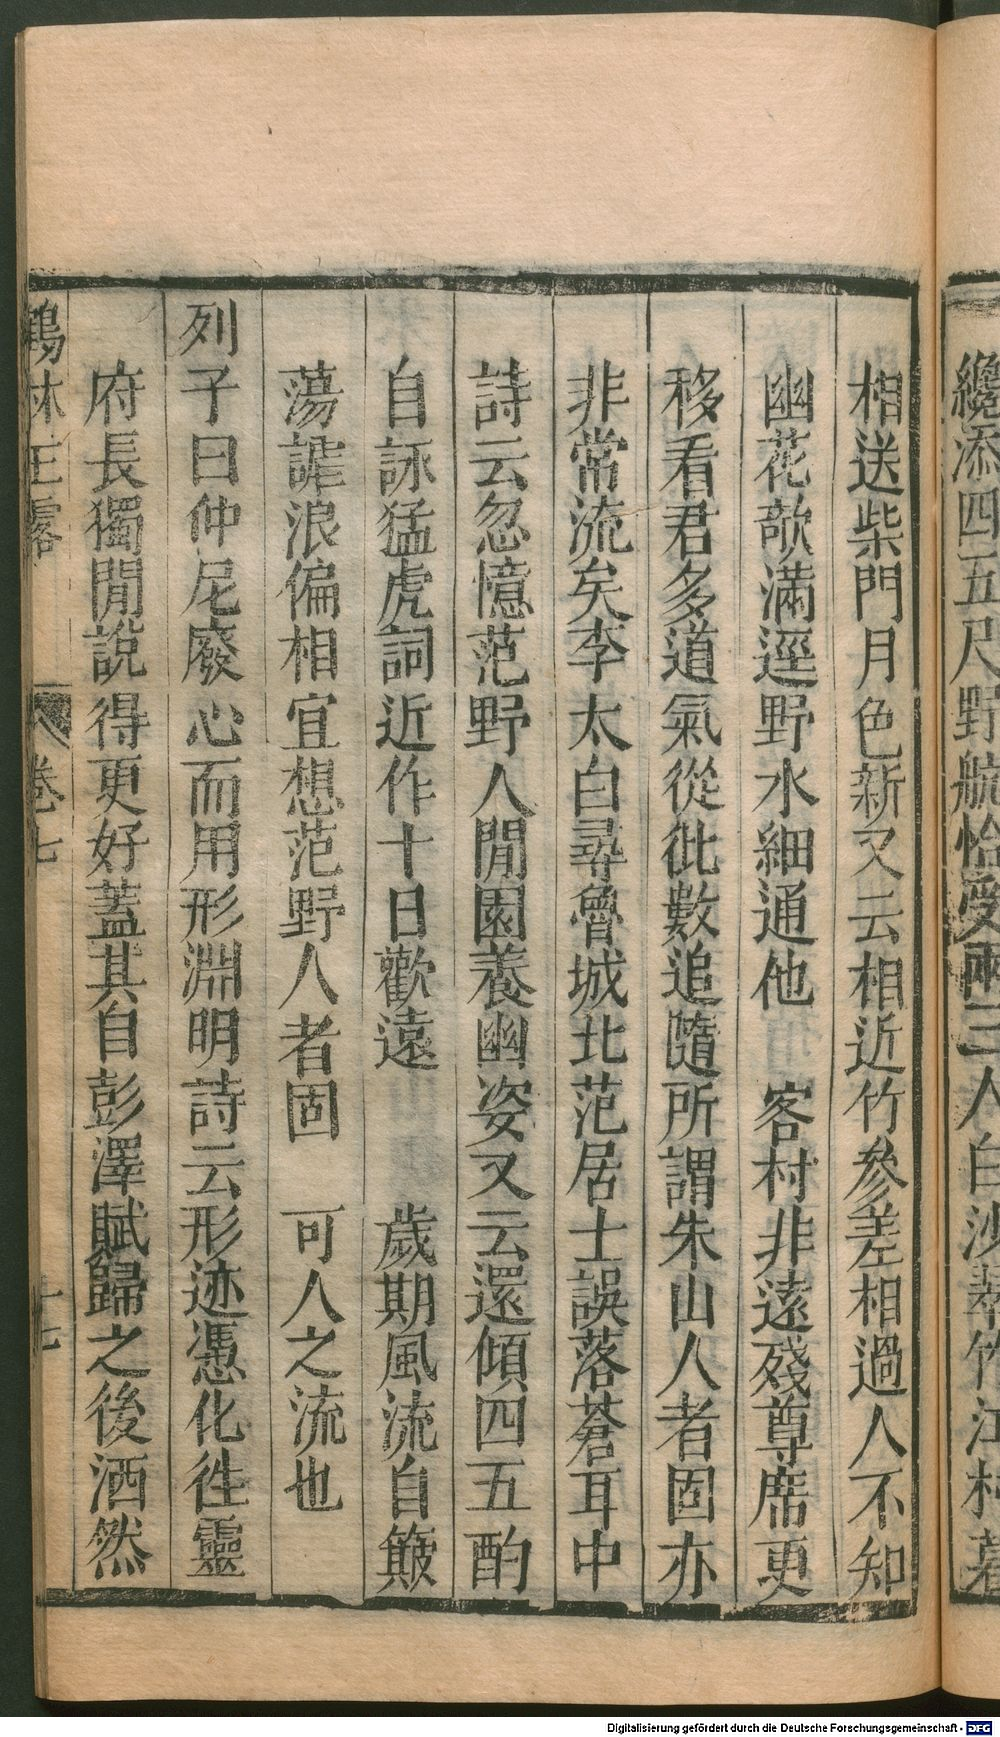 纔添四五尺野航恰受兩三人白沙翠竹江村暮
相送柴門月色新又云相近竹參差相過人不知
幽花欹滿逕野水細通他　客村非遠殘尊席更
移看君多道氣從此數追隨所謂朱山人者固亦
非常流矣李太白尋魯城北范居士誤落蒼耳中
詩云忽憶范野人閒園養幽姿又云還傾四五酌
自詠猛虎詞近作十日歡遠　歲期風流自簸
蕩謔浪偏相宜想范野人者固　可人之流也
列子曰仲尼廢心而用形淵明詩云形迹憑化徃靈
府長獨閒說得更好蓋其自彭澤賦歸之後洒然
鶴林玉露　卷七　十七
Digitalisierung gefördert durch die Deutsche Forschungsgemeinschaft - DFG